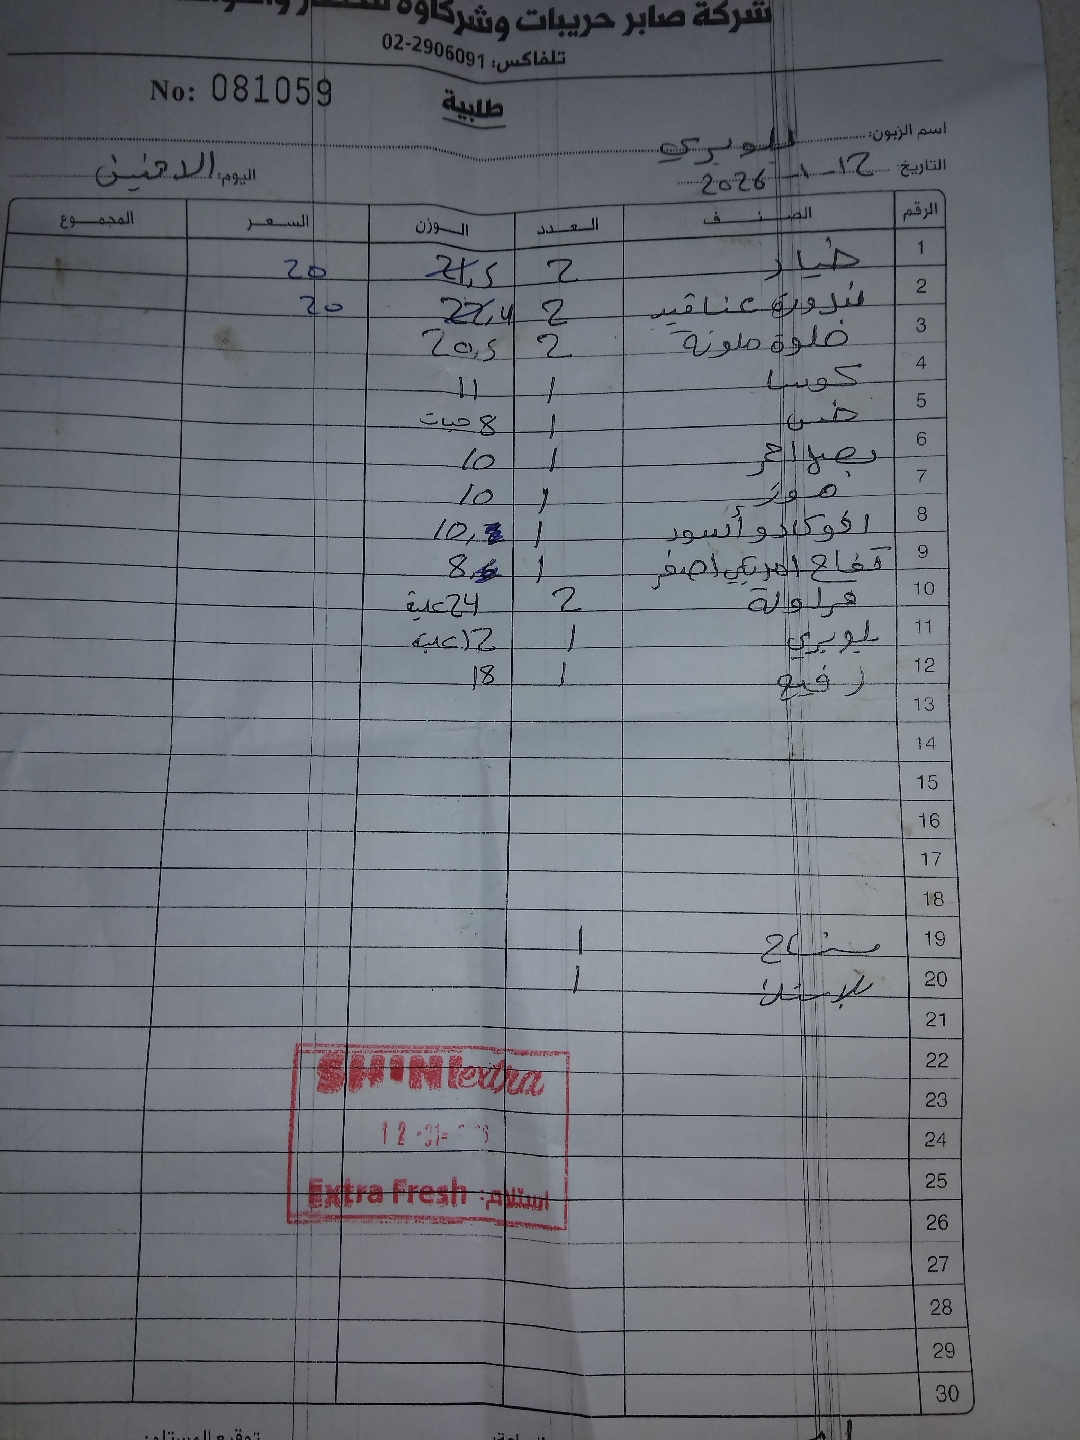 شركة صابر حريبات وشركاؤه
تلفاكس: 02-2906091
No: 081059
طلبية
اسم الزبون: بلوبيري
التاريخ 12-1-2026
اليوم: الاثنين
الرقم الصنف العدد الوزن السعر المجموع
1 خيار 2 21,5 20
2 بندورة عناقيد 2 22,4 20
3 حلوة ملونة 2 20,5
4 كوسا 1 11
5 خس 1 8 حبات
6 بصل احمر 1 10
7 موز 1 10
8 افوكادو أسود 1 10,
9 تفاح امريكي اصفر 1 8,
10 فراولة 2 24 علبة
11 بلوبيري 1 12 علبة
12 رفيع 1 18
13
14
15
16
17
18
19 1
20 1
21
22
23
24
25
26
27
28
29
30
SHINI extra
12-01-
Extra Fresh استلام:
توقيع المستلم: